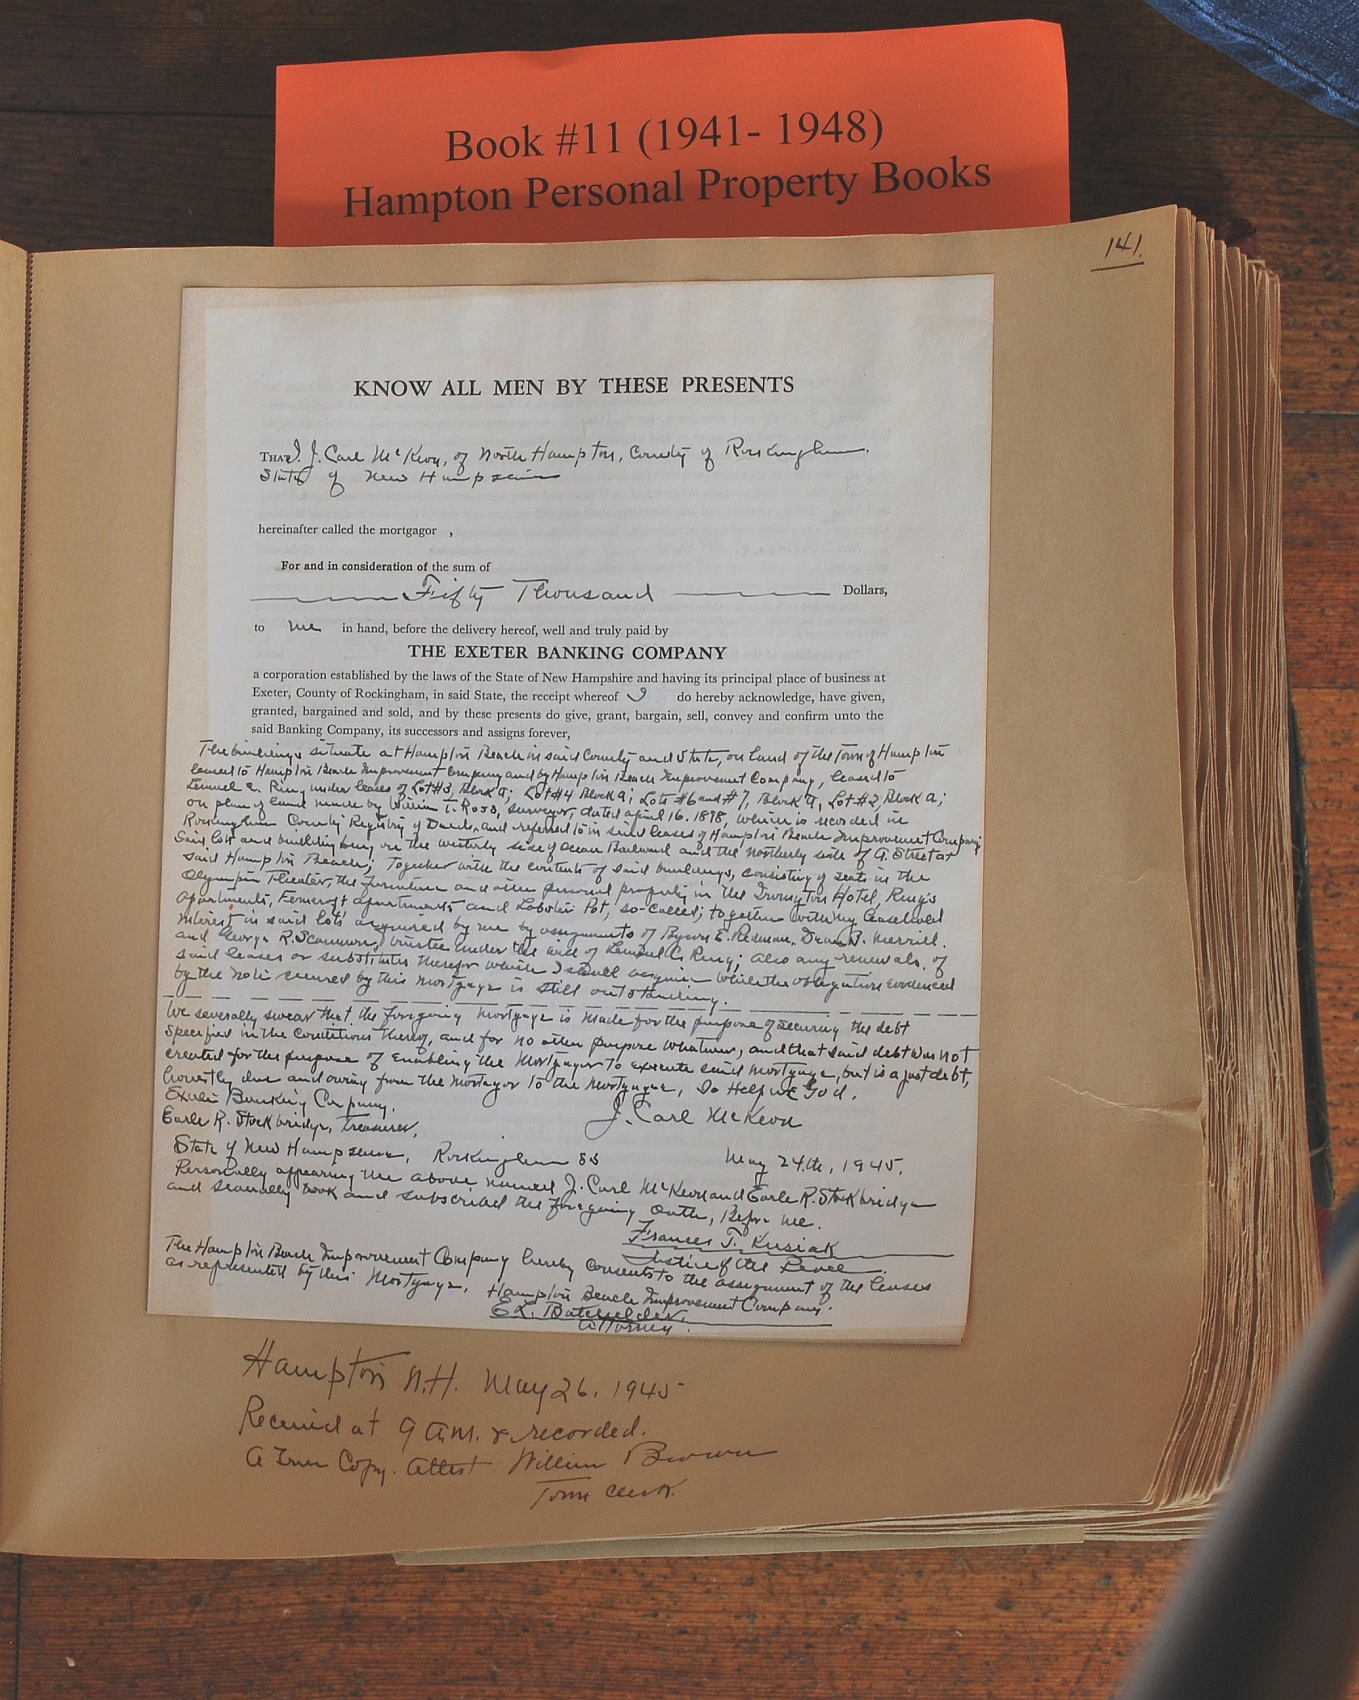 Book #11 (1941- 1948)
Hampton Personal Property Books
141.
KNOW ALL MEN BY THESE PRESENTS
THAT I. J. Carl McKeon, of North Hampton, County of Rockingham.
State of New Hampshire
hereinafter called the mortgagor ,
For and in consideration of the sum of
Fifty Thousand Dollars,
to me in hand, before the delivery hereof, well and truly paid by
THE EXETER BANKING COMPANY
a corporation established by the laws of the State of New Hampshire and having its principal place of business at
Exeter, County of Rockingham, in said State, the receipt whereof I do hereby acknowledge, have given,
granted, bargained and sold, and by these presents do give, grant, bargain, sell, convey and confirm unto the
said Banking Company, its successors and assigns forever,
The buildings situate at Hampton Beach in said County and State, on land of the Town of Hampton
leased to Hampton Beach Improvement Company and by Hampton Beach Improvement Company, leased to
Lemuel C. Ring under leases of Lot #3, Block 9; Lot #4 Block 9; Lots #6 and #7, Block 9, Lot #2, Block 9;
on plan of land made by William T. Ross, surveyor, dated April 16. 1898, which is recorded in
Rockingham County Registry of Deeds, and referred to in said leases of Hampton Beach Improvement Company
Said lots and building being on the westerly side of Ocean Boulevard and the northerly side of G. Street at
said Hampton Beach; Together with the contents of said buildings, consisting of seats in the
Olympia Theater, the furniture and other personal property in the Irvington Hotel, Ring's
Apartments, Ferncroft Apartments and Lobster Pot, so-called; together with my leasehold
interest in said lots acquired by me by assignments of Byron E. Redman, Dean B. Merrill.
and George R. Scammon, trustee under the will of Lemuel C. Ring; also any renewals, of
said leases or substitutes therefor which I shall acquire while the obligation evidenced
by the note secured by this mortgage is still outstanding.
We severally swear that the foregoing mortgage is made for the purpose of securing the debt
specified in the conditions thereof, and for no other purpose whatever, and that said debt was not
created for the purpose of enabling the Mortgagor to execute said mortgage, but is a just debt,
honestly due and owing from the mortagor to the mortgagee, So Help us God.
Exeter Banking Company. J. Carl McKeon
Earle R. Stockbridge, treasurer,
State of New Hampshire, Rockingham SS May 24th, 1945.
Personally appearing the above named J. Carl McKeon and Earle R. Stockbridge
and severally took and subscribed the foregoing Oath, Before me.
Frances T. Kusiak
Justice of the Peace.
The Hampton Beach Improvement Company hereby consents to the assignment of the leases
as represented by this Mortgage. Hampton Beach Improvement Company.
Ex. Batchelder.
Attorney.
Hampton N.H. May 26, 1945
Received at 9 A.M. & recorded.
A True Copy. Attest William Brown
Town Clerk.